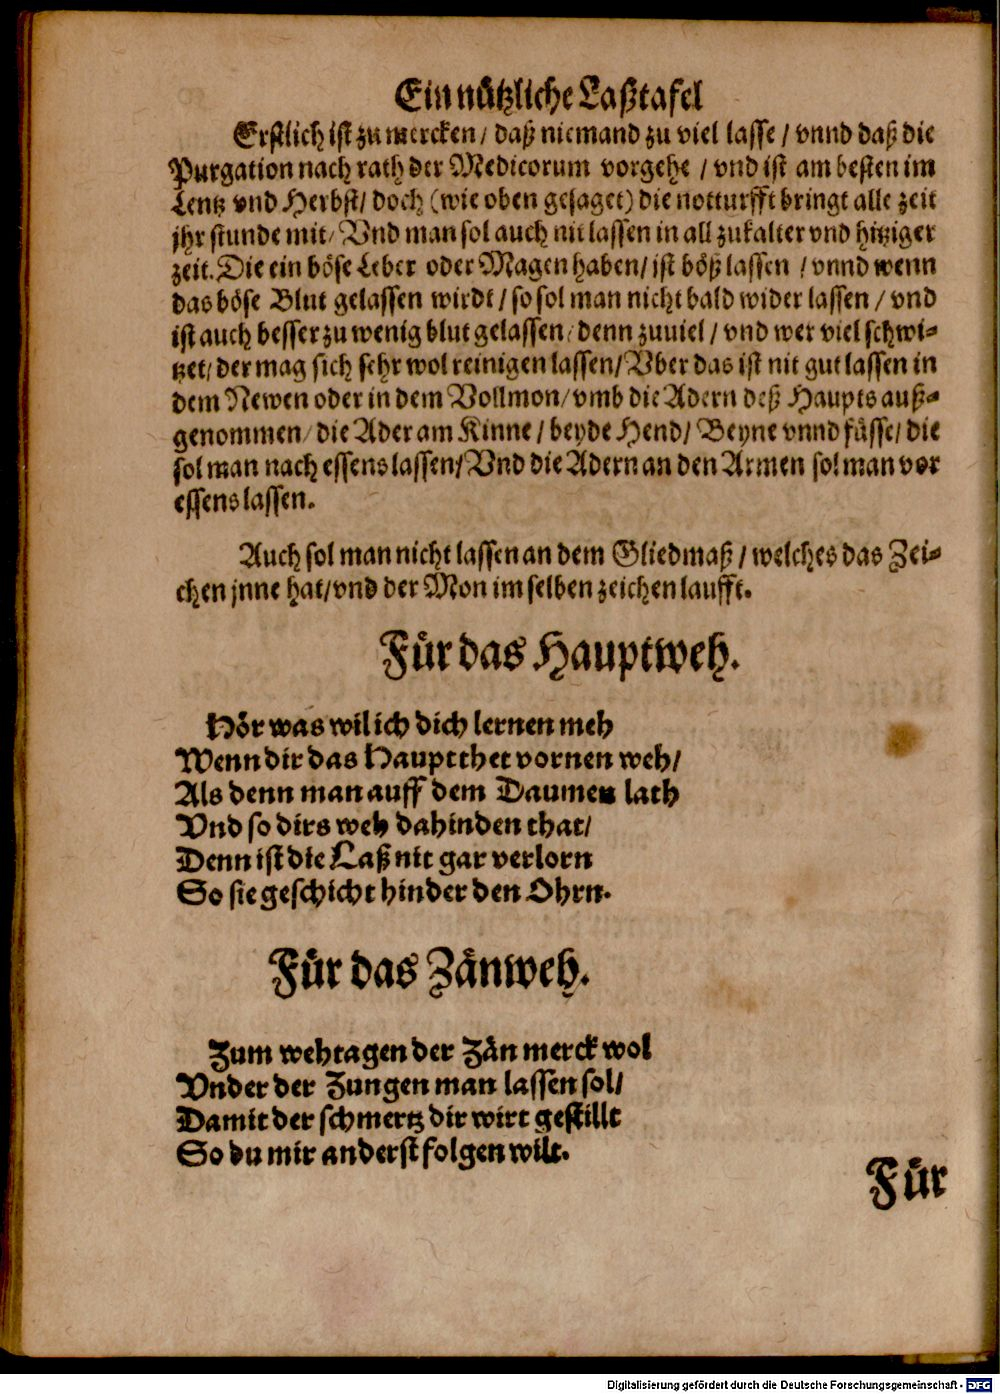 Ein nützliche Laßtafel
Erstlich ist zu mercken / daß niemand zu viel lasse / vnnd daß die
Purgation nach rath der Medicorum vorgehe / vnd ist am besten im
Lentz vnd Herbst / doch (wie oben gesaget) die notturfft bringt alle zeit
jhr stunde mit / Vnd man sol auch nit lassen in all zukalter vnd hitziger
zeit. Die ein böse Leber oder Magen haben / ist böß lassen / vnnd wenn
das böse Blut gelassen wirdt / so sol man nicht bald wider lassen / vnd
ist auch besser zu wenig blut gelassen / denn zuuiel / vnd wer viel schwi-
tzet / der mag sich sehr wol reinigen lassen / Vber das ist nit gut lassen in
dem Newen oder in dem Vollmon / vmb die Adern deß Haupts auß-
genommen / die Ader am Kinne / beyde Hend / Beyne vnnd füsse / die
sol man nach essens lassen / Vnd die Adern an den Armen sol man vor
essens lassen.
Auch sol man nicht lassen an dem Gliedmaß / welches das Zei-
chen jnne hat / vnd der Mon im selben zeichen laufft.
Für das Hauptweh.
Hör was wil ich dich lernen meh
Wenn dir das Haupt thet vornen weh /
Als denn man auff dem Daumen lath
Vnd so dirs weh dahinden that /
Denn ist die Laß nit gar verlorn
So sie geschicht hinder den Ohrn.
Für das Zänweh.
Zum wehtagen der Zän merck wol
Vnder der Zungen man lassen sol /
Damit der schmertz dir wirt gestillt
So du mir anderst folgen wilt.
Für
Digitalisierung gefördert durch die Deutsche Forschungsgemeinschaft - DFG